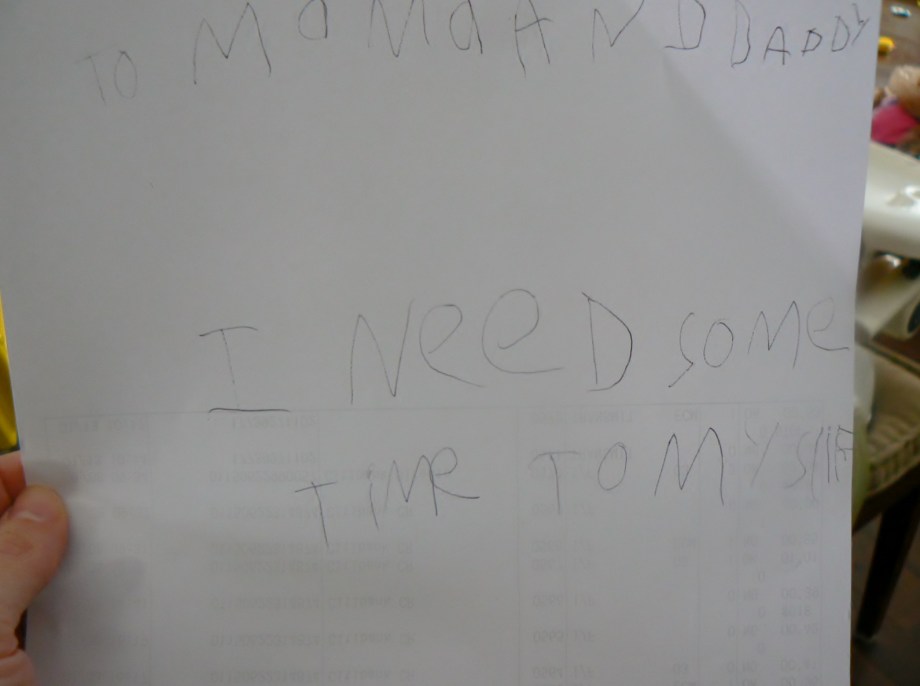 TO MOMO AND DADDY
I NeeD SOMe
TIMe TO MYSlIF